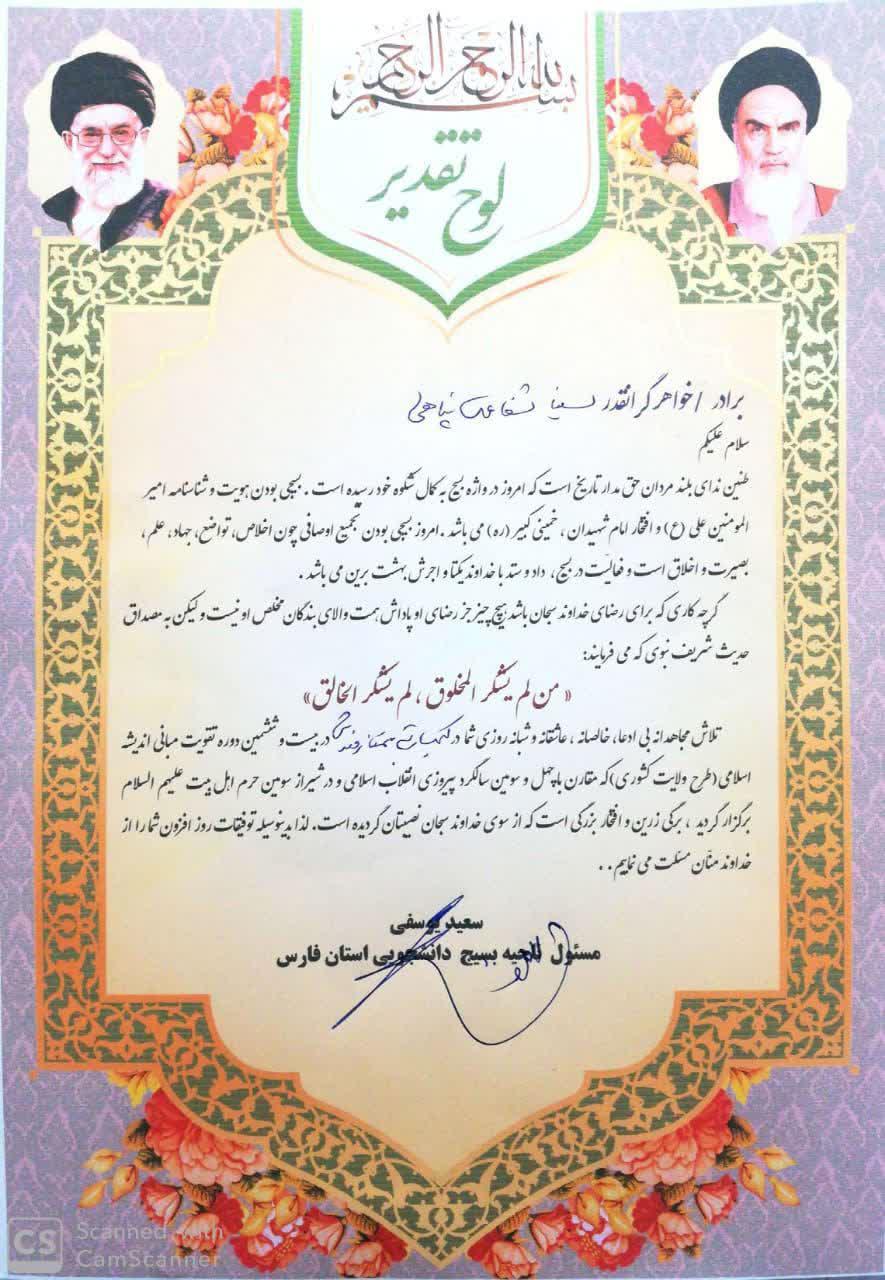 بسم الله الرحمن الرحیم
لوح تقدیر
برادر / خواهر گرانقدر سینا شفاعت پناهی
سلام علیکم
طنین ندای بلند مردان حق مدار تاریخ است که امروز در واژه بسیج به کمال شکوه خود رسیده است . بسیجی بودن هویت و شناسنامه امیر
المومنین علی (ع) و افتخار امام شهیدان ، خمینی کبیر (ره) می باشد . امروز بسیجی بودن تجمیع اوصافی چون اخلاص، تواضع، جهاد، علم ،
بصیرت و اخلاق است و فعالیّت در بسیج، داد و ستد با خداوند یکتا و اجرش بهشت برین می باشد .
گرچه کاری که برای رضای خداوند سبحان باشد هیچ چیز جز رضای او پاداش همت والای بندگان مخلص او نیست ولیکن به مصداق
حدیث شریف نبوی که می فرمایند:
« من لم یشکر المخلوق ، لم یشکر الخالق»
تلاش مجاهدانه بی ادعا، خالصانه ، عاشقانه و شبانه روزی شما در در بیست و ششمین دوره تقویت مبانی اندیشه
اسلامی(طرح ولایت کشوری)که مقارن با چهل و سومین سالگرد پیروزی انقلاب اسلامی و در شیراز سومین حرم اهل بیت علیهم السلام
برگزار گردید ، برگی زرین و افتخار بزرگی است که از سوی خداوند سبحان نصیبتان گردیده است. لذا بدینوسیله توفیقات روز افزون شما را از
خداوند منّان مسئلت می نماییم . .
سعید یوسفی
مسئول ناحیه بسیج دانشجویی استان فارس
CS Scanned with
CamScanner